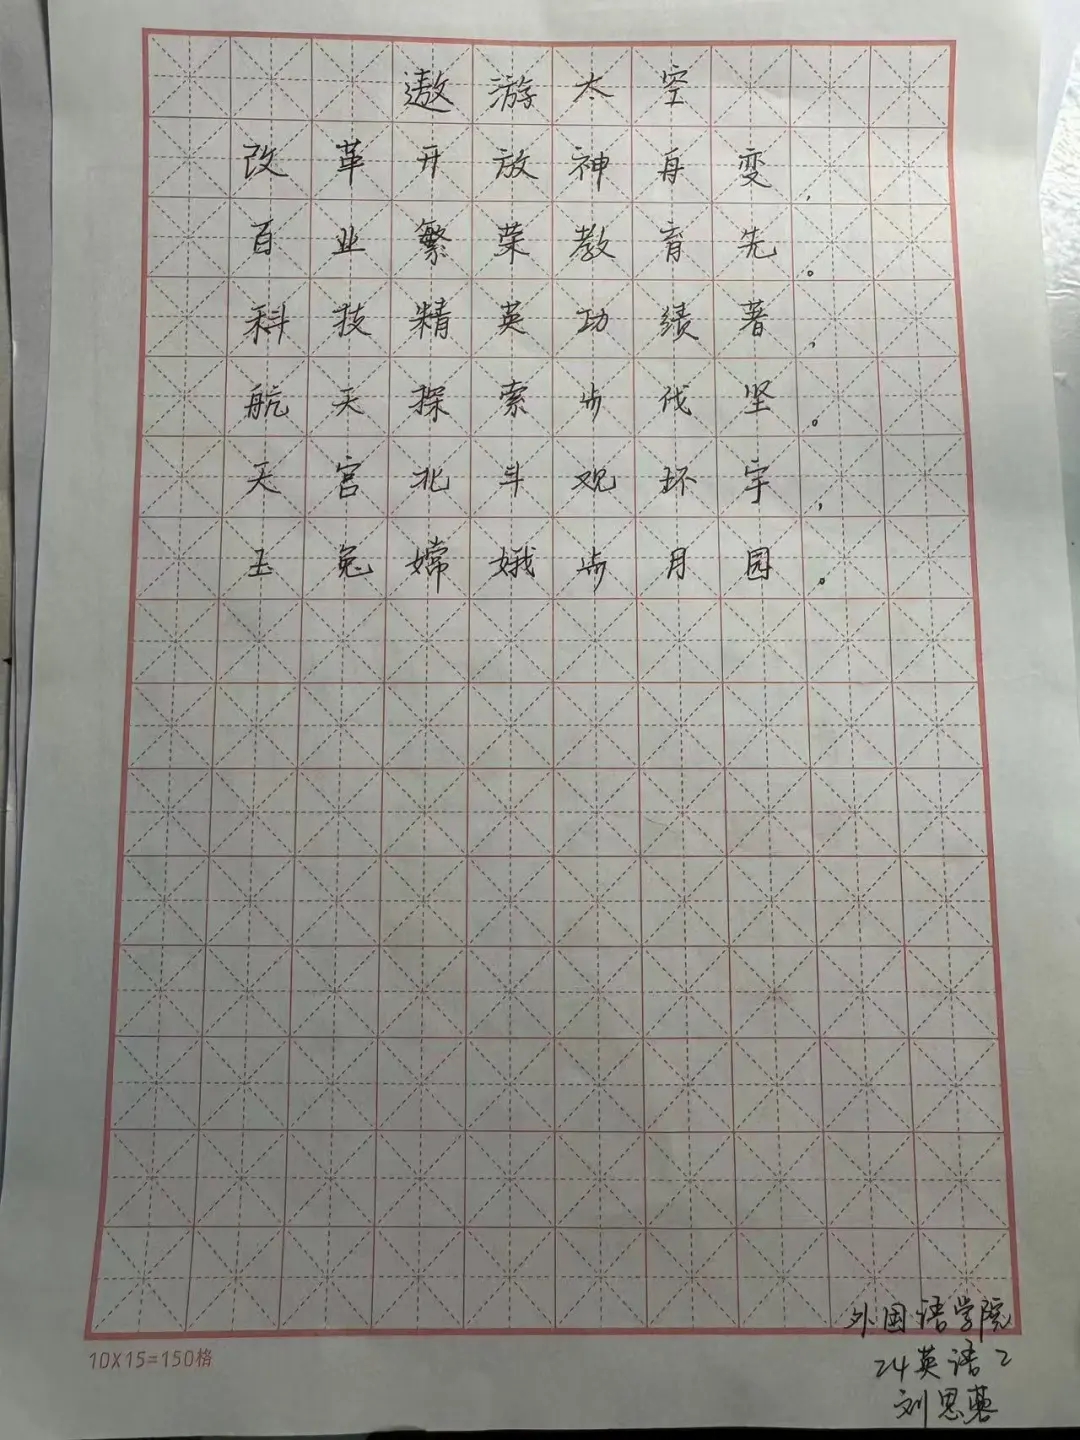 遨游太空
改革开放神舟变，
百业繁荣教育先。
科技精英功绩著，
航天探索步伐坚。
天宫北斗观环宇，
玉兔嫦娥步月园。
10X15=150格
外国语学院
24英语2
刘思